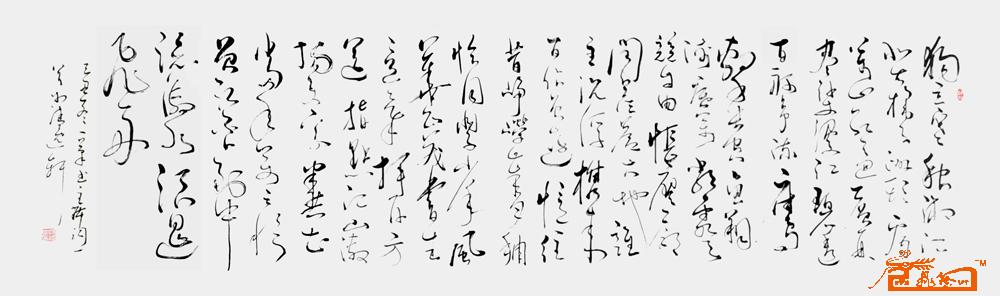 独立寒秋湘江
北去橘子洲头看
万山红遍层林
尽染漫江碧透
百舸争流鹰击
长空鱼翔
浅底万类霜天
竞自由怅寥廓
问苍茫大地谁
主沉浮携来
百侣曾游忆往
昔峥嵘岁月稠
恰同学少年风
华正茂书生
意气挥斥方
遒指点江山激
扬文字粪土
当年万户侯
曾记否到中
流击水浪遏
飞舟